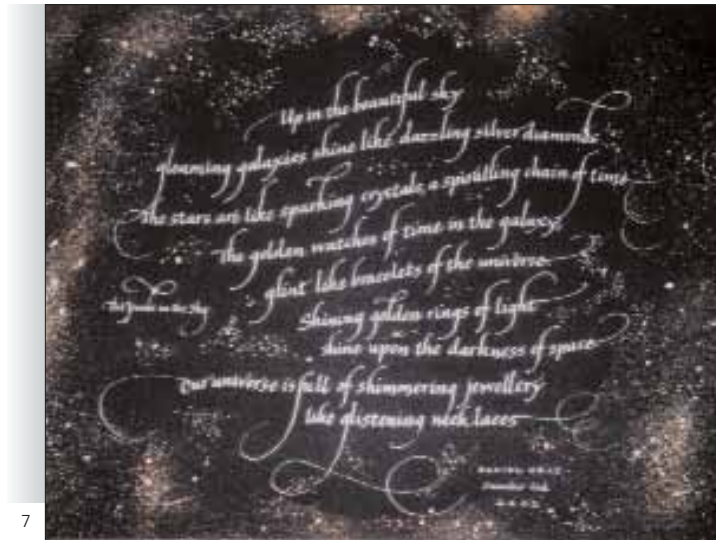 Up in the beautiful sky
gleaming galaxies shine like dazzling silver diamonds
The stars are like sparking crystals a spiralling chain of time
The golden watches of time in the galaxy,
glint like bracelets of the universe
The Jewels in the Sky
Shining golden rings of light
shine upon the darkness of space
Our universe is full of shimmering jewellery
like glistening neck laces
7